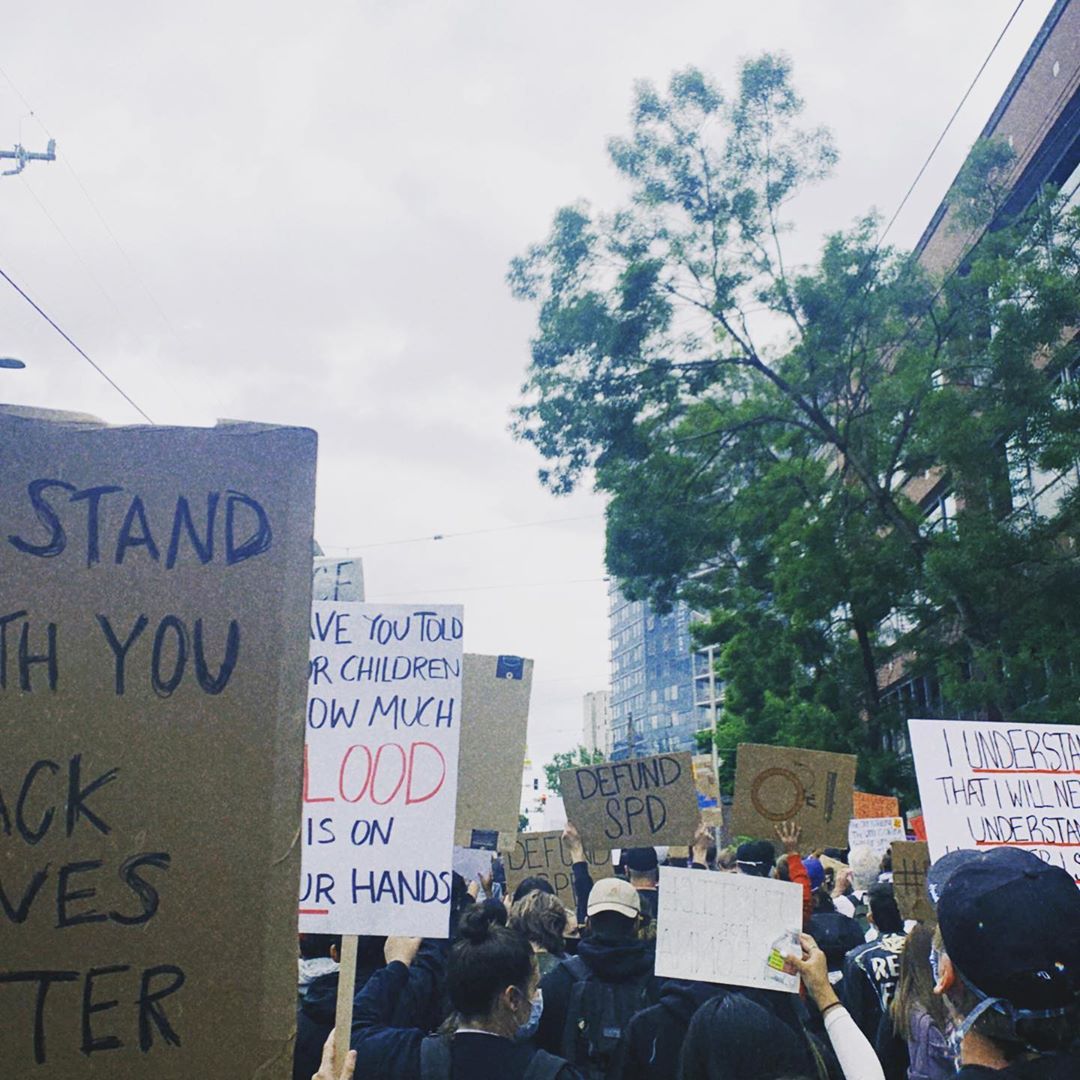 STAND
TH YOU
ACK
VES
TTER
CE
AVE YOU TOLD
UR CHILDREN
OW MUCH
LOOD
IS ON
UR HANDS
DEFUND
SPD
DEFUND
I UNDERSTA
THAT I WILL NE
UNDERSTA
RE
#